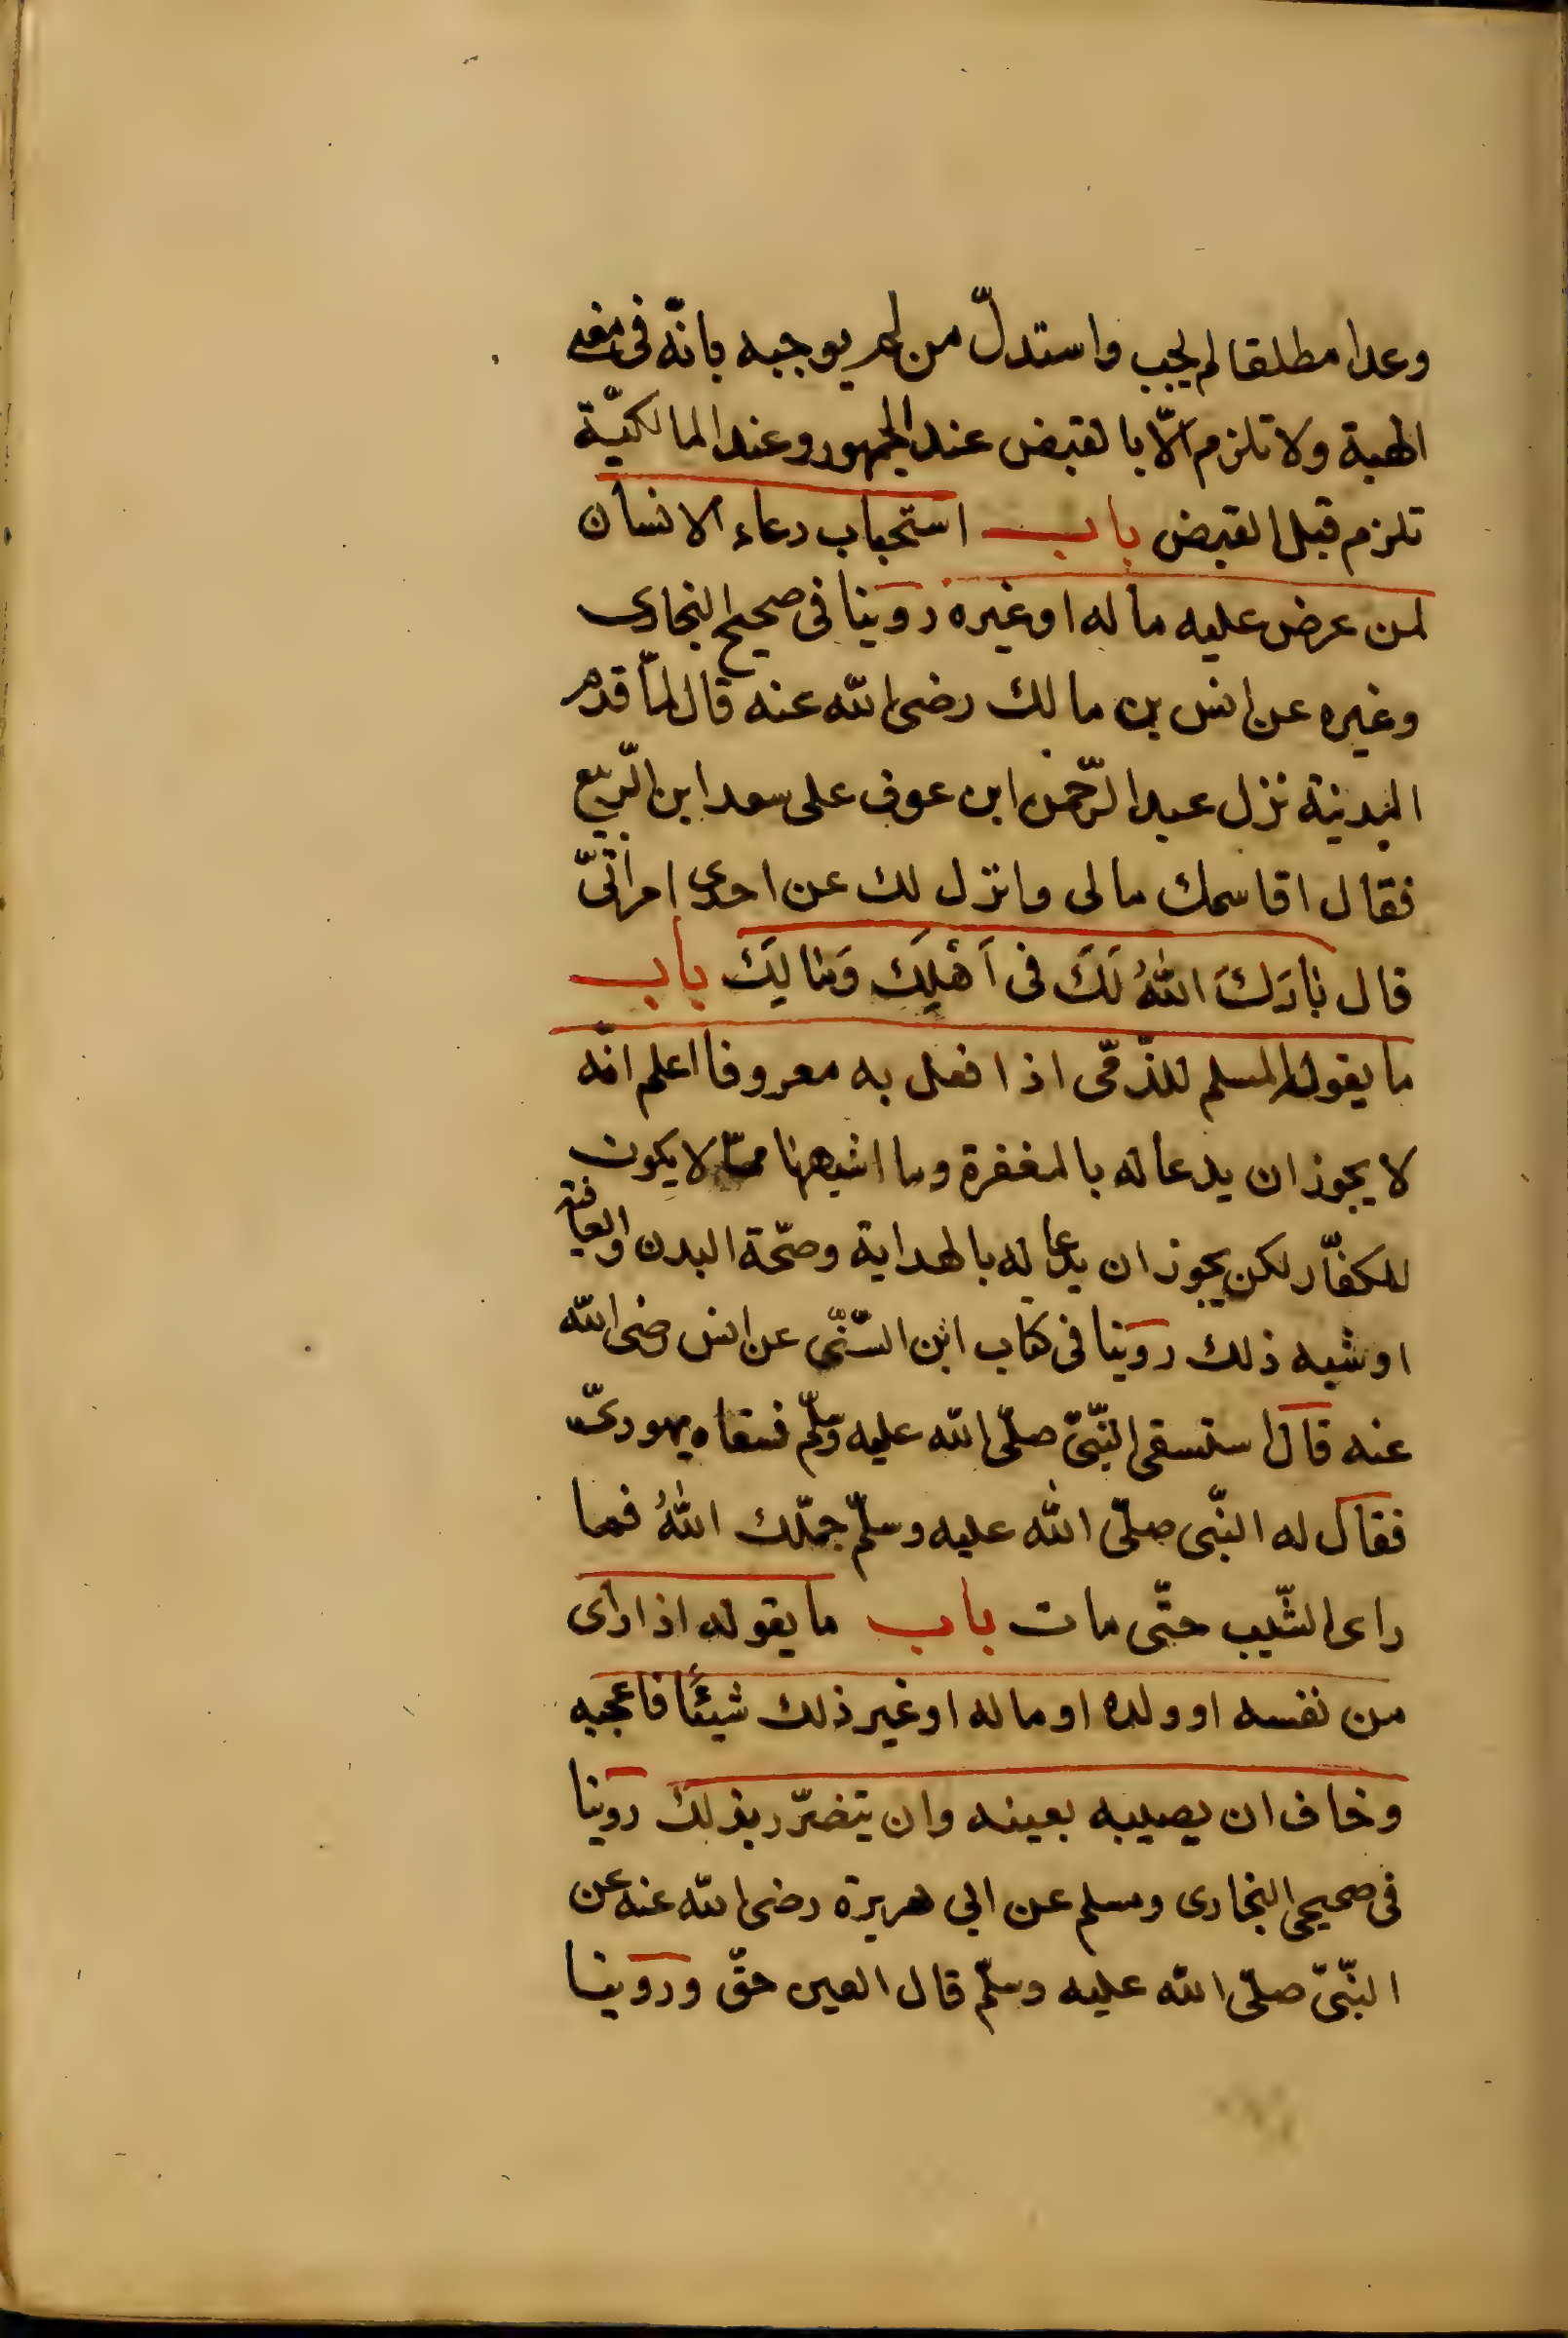 وعدا مطلقا لم يجب واستدلّ من لم يوجبه بانّه فى معنى
الهبة ولا تلزم الّا بالقبض عند الجمهور وعند المالكيّة
تلزم قبل القبض باب استحباب دعاء الانسان
لمن عرض عليه ماله او غيره روينا فى صحيح البخارى
وغيره عن انس بن مالك رضى الله عنه قال لمّا قدم
المدينة نزل عبد الرّحمن ابن عوف على سعد ابن الرّبيع
فقال اقاسمك مالى وانزل لك عن احدى امراتىّ
قال بَارَكَ اللهُ لَكَ فى اَهْلِكَ وَمَالِكَ باب
ما يقول المسلم للذّمّى اذا فعل به معروفا اعلم انّه
لا يجوز ان يدعا له بالمغفرة وما اشبهها ممّا لا يكون
للكفّار لكن يجوز ان يدعا له بالهداية وصحّة البدن والعافية
او شبه ذلك روينا فى كتاب ابن السّنّى عن انس رضى الله
عنه قال استسقى النّبىّ صلّى الله عليه وسلّم فسقاه يهودىّ
فقال له النّبى صلّى الله عليه وسلّم جمّلك اللهُ فما
راى الشّيب حتّى مات باب ما يقوله اذا راى
من نفسه او ولده او ماله او غير ذلك شيئًا فاعجبه
وخاف ان يصيبه بعينه وان يتضرّر بذلك روينا
فى صحيحى البخارى ومسلم عن ابى هريرة رضى الله عنه عن
النّبىّ صلّى الله عليه وسلّم قال العين حقّ وروينا